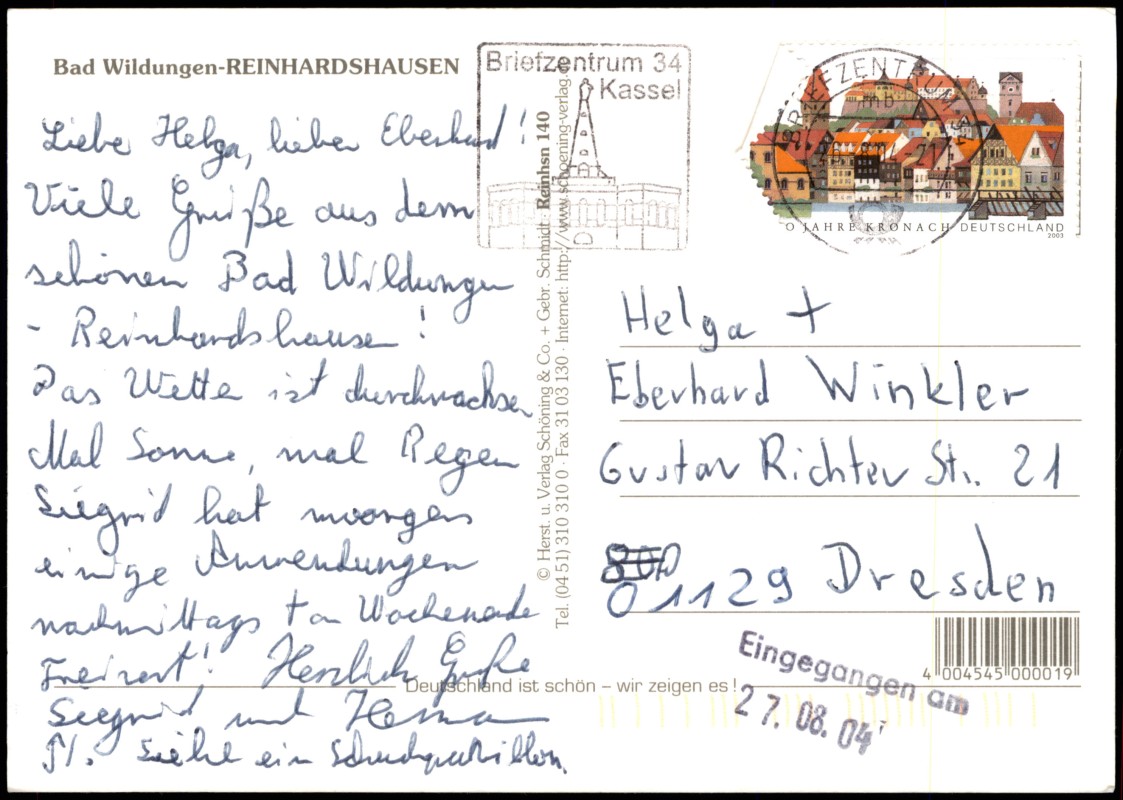 Bad Wildungen-REINHARDSHAUSEN
Liebe Helga, lieber Eberhard!
Viele Grüße aus dem
schönen Bad Wildungen
- Reinhardshausen!
Das Wetter ist durchwachsen
Mal Sonne, mal Regen
Siegrid hat morgens
einige Anwendungen
nachmittags + am Wochenende
Freizeit! Herzlich Grüße
Siegrid und
Siehe ein
© Herst. u. Verlag Schöning & Co. + Gebr. Schmidt · Reinhsn 140
Tel. (04 51) 310 310 0 · Fax 31 03 130 · Internet: http://www.schoening-verlag.
Deutschland ist schön – wir zeigen es!
Briefzentrum 34
Kassel
BRIEFZENTRUM
mb
0 JAHRE KRONACH DEUTSCHLAND
2003
Helga +
Eberhard Winkler
Gustav Richter Str. 21
01129 Dresden
4 004545 000019
Eingegangen am
27. 08. 04